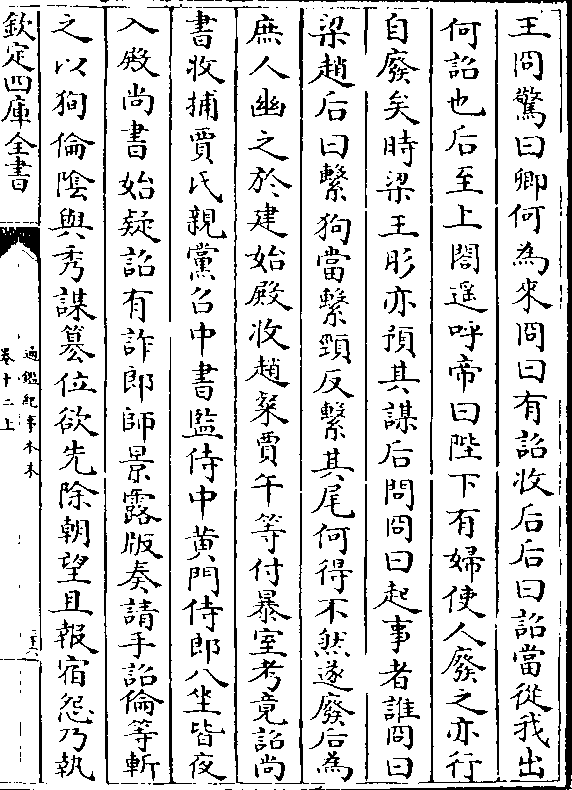 王冏驚曰卿何為來冏曰有詔收后后曰詔當從我出
何詔也后至上閤遥呼帝曰陛下有婦使人廢之亦行
自廢矣時梁王肜亦預其謀后問冏曰起事者誰冏曰
梁趙后曰繫狗當繫頸反繫其尾何得不然遂廢后為
庶人幽之於建始殿收趙粲賈午等付暴室考竟詔尚
書收捕賈氏親黨召中書監侍中黄門侍郎八坐皆夜
入殿尚書始疑詔有詐郎師景露版奏請手詔倫等斬
之以狥倫陰與秀謀簒位欲先除朝望且報宿怨乃執
欽定四庫全書
通鑑紀事本末
卷十二上